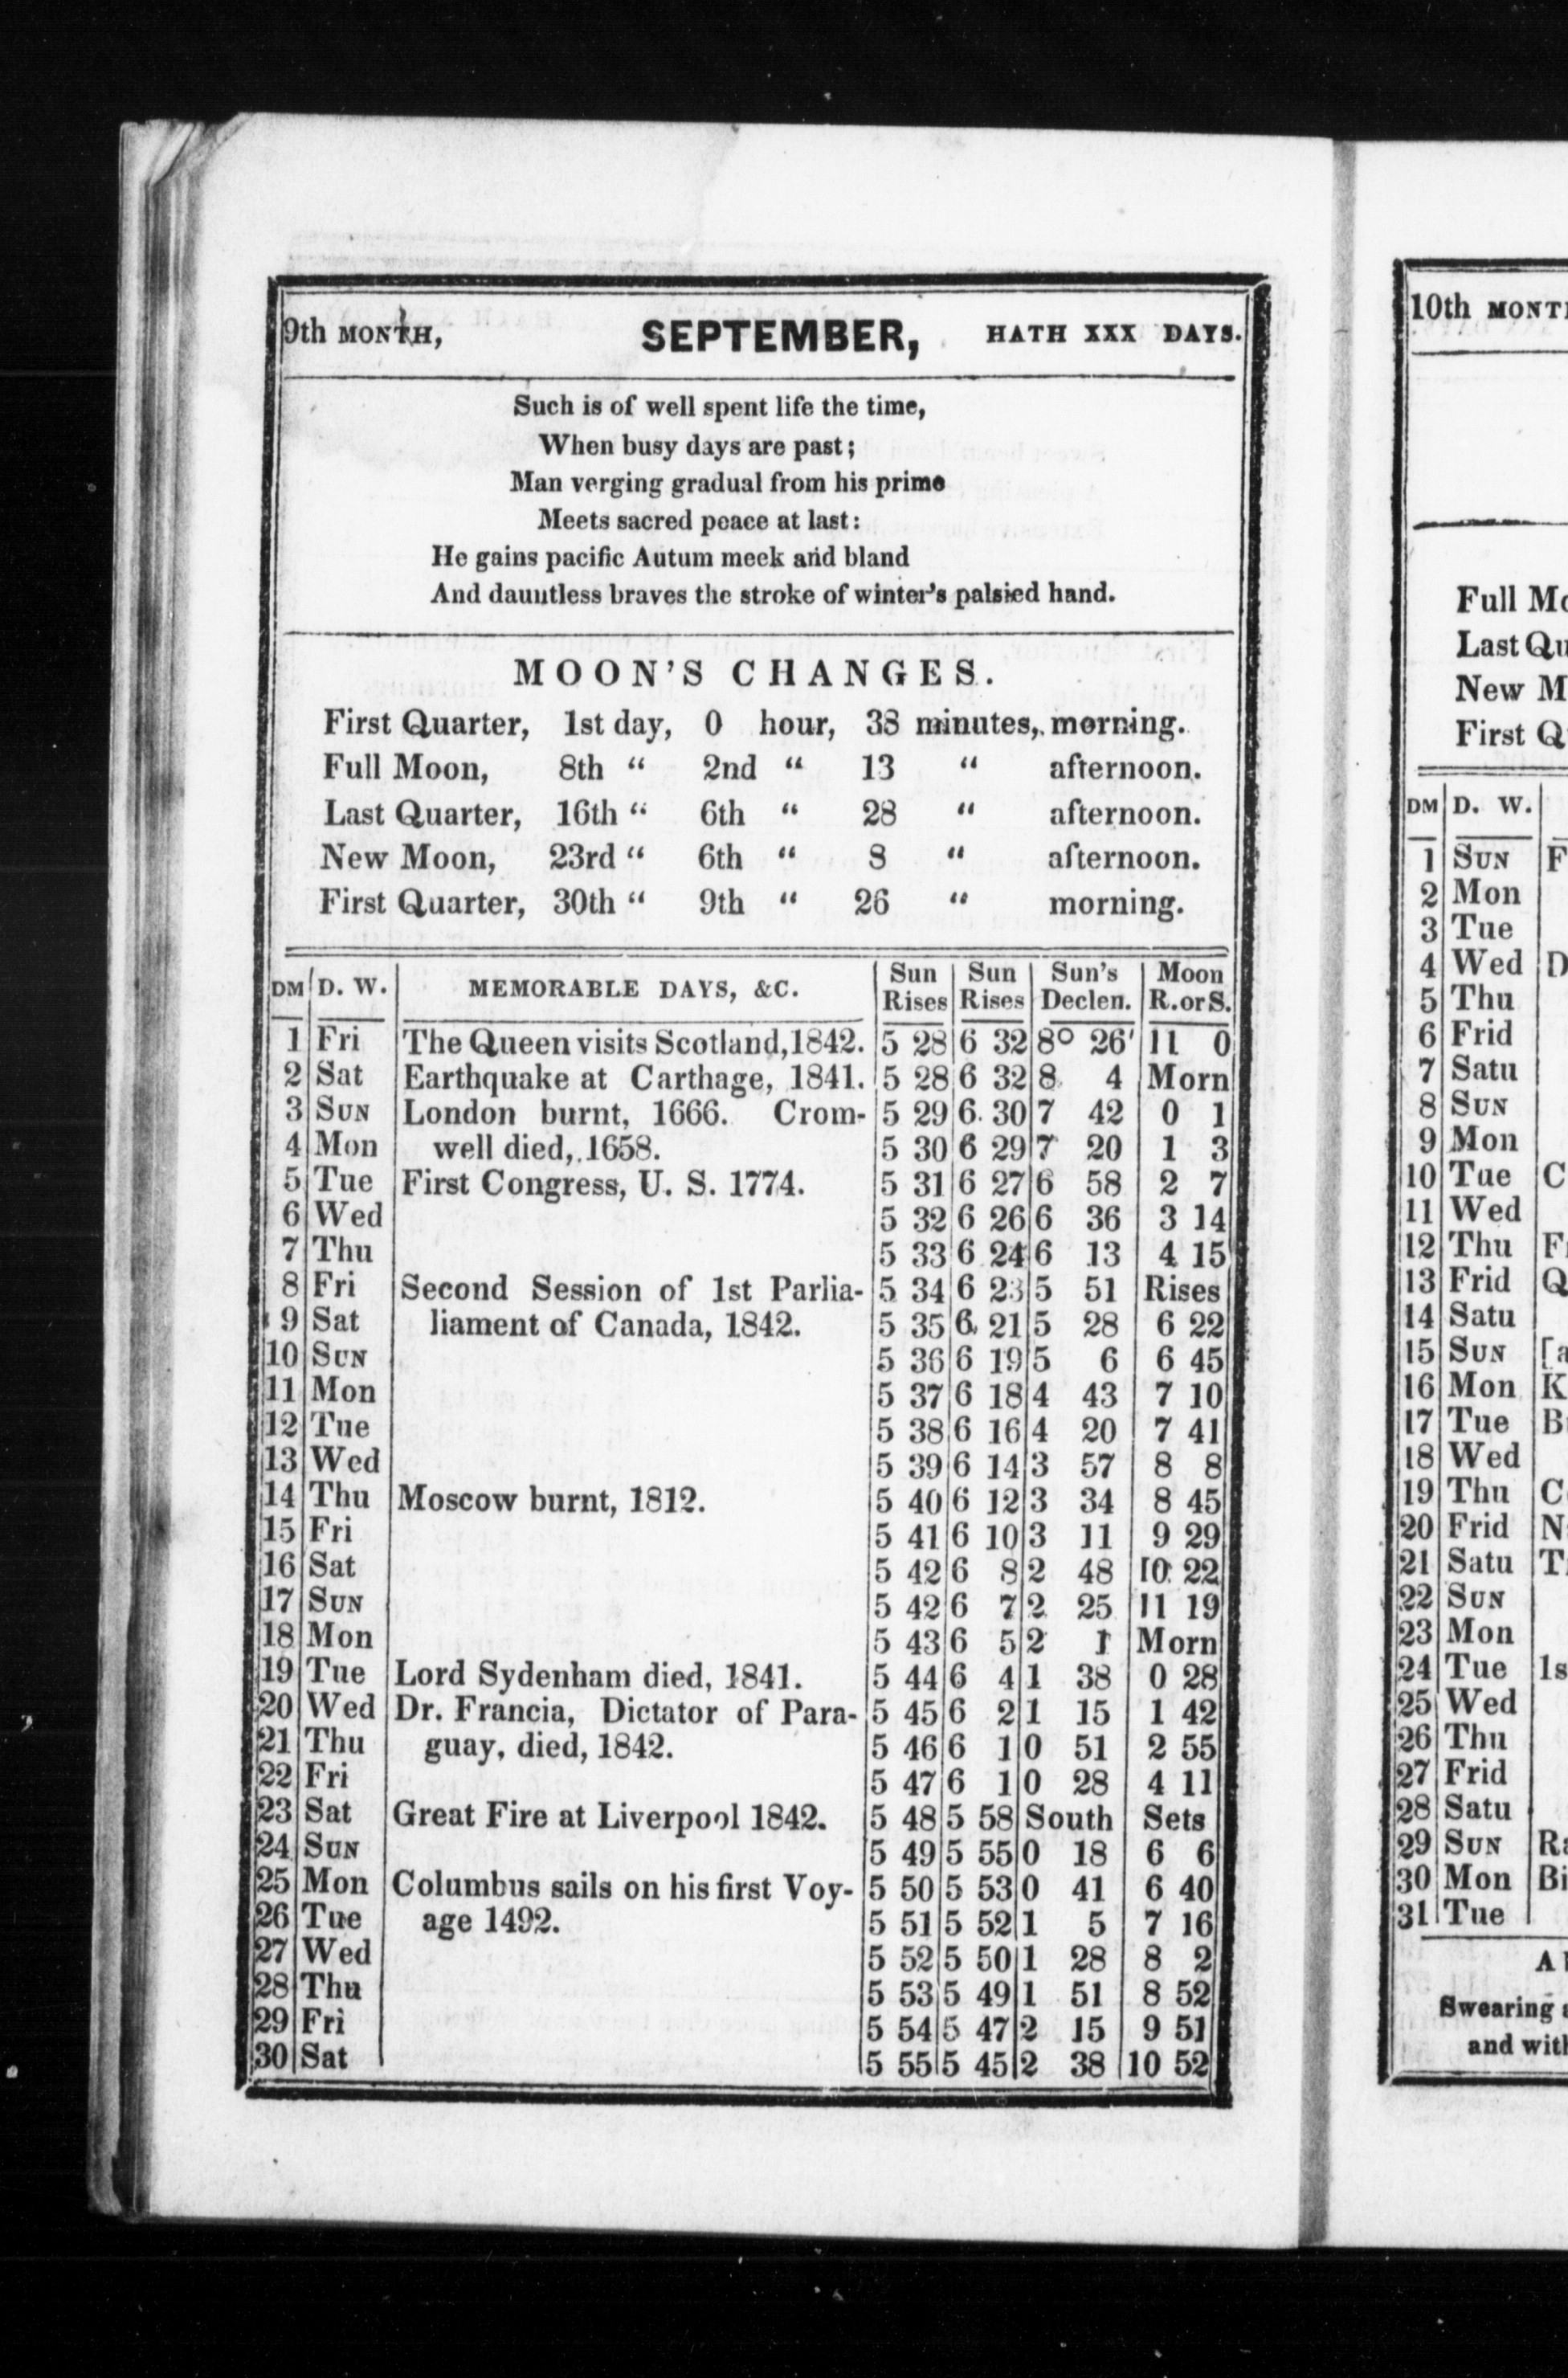 9th MONTH, SEPTEMBER, HATH XXX DAYS.
Such is of well spent life the time,
When busy days are past;
Man verging gradual from his prime
Meets sacred peace at last:
He gains pacific Autum meek and bland
And dauntless braves the stroke of winter's palsied hand.
MOON'S CHANGES.
First Quarter, 1st day, 0 hour, 38 minutes, morning.
Full Moon, 8th " 2nd " 13 " afternoon.
Last Quarter, 16th " 6th " 28 " afternoon.
New Moon, 23rd " 6th " 8 " afternoon.
First Quarter, 30th " 9th " 26 " morning.
DM D. W. MEMORABLE DAYS, &C. Sun Rises Sun Rises Sun's Declen. Moon R. or S.
1 Fri The Queen visits Scotland, 1842. 5 28 6 32 8° 26' 11 0
2 Sat Earthquake at Carthage, 1841. 5 28 6 32 8 4 Morn
3 SUN London burnt, 1666. Crom- 5 29 6 30 7 42 0 1
4 Mon well died, 1658. 5 30 6 29 7 20 1 3
5 Tue First Congress, U. S. 1774. 5 31 6 27 6 58 2 7
6 Wed 5 32 6 26 6 36 3 14
7 Thu 5 33 6 24 6 13 4 15
8 Fri Second Session of 1st Parlia- 5 34 6 23 5 51 Rises
9 Sat liament of Canada, 1842. 5 35 6 21 5 28 6 22
10 SUN 5 36 6 19 5 6 6 45
11 Mon 5 37 6 18 4 43 7 10
12 Tue 5 38 6 16 4 20 7 41
13 Wed 5 39 6 14 3 57 8 8
14 Thu Moscow burnt, 1812. 5 40 6 12 3 34 8 45
15 Fri 5 41 6 10 3 11 9 29
16 Sat 5 42 6 8 2 48 10 22
17 SUN 5 42 6 7 2 25 11 19
18 Mon 5 43 6 5 2 1 Morn
19 Tue Lord Sydenham died, 1841. 5 44 6 4 1 38 0 28
20 Wed Dr. Francia, Dictator of Para- 5 45 6 2 1 15 1 42
21 Thu guay, died, 1842. 5 46 6 1 0 51 2 55
22 Fri 5 47 6 1 0 28 4 11
23 Sat Great Fire at Liverpool 1842. 5 48 5 58 South Sets
24 SUN 5 49 5 55 0 18 6 6
25 Mon Columbus sails on his first Voy- 5 50 5 53 0 41 6 40
26 Tue age 1492. 5 51 5 52 1 5 7 16
27 Wed 5 52 5 50 1 28 8 2
28 Thu 5 53 5 49 1 51 8 52
29 Fri 5 54 5 47 2 15 9 51
30 Sat 5 55 5 45 2 38 10 52
10th
Full
Last
New
First
DM D. W.
1 SUN
2 Mon
3 Tue
4 Wed
5 Thu
6 Frid
7 Satu
8 SUN
9 Mon
10 Tue
11 Wed
12 Thu
13 Frid
14 Satu
15 SUN
16 Mon
17 Tue
18 Wed
19 Thu
20 Frid
21 Satu
22 SUN
23 Mon
24 Tue
25 Wed
26 Thu
27 Frid
28 Satu
29 SUN
30 Mon
31 Tue
Swearing
and